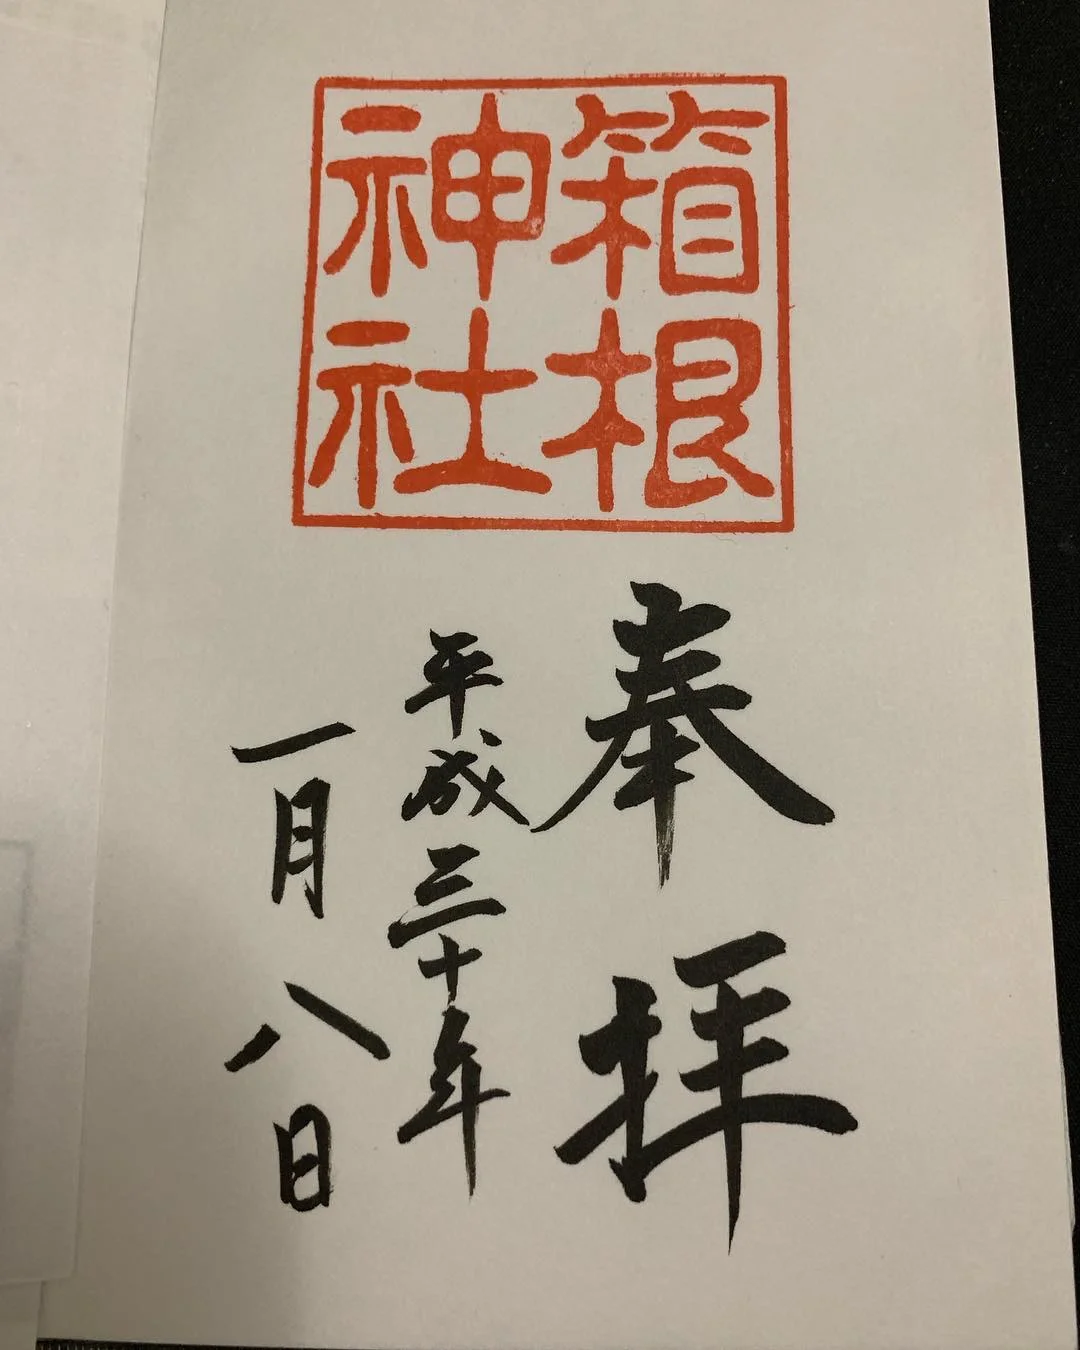 箱根
神社
奉拝
平成三十年
一月八日